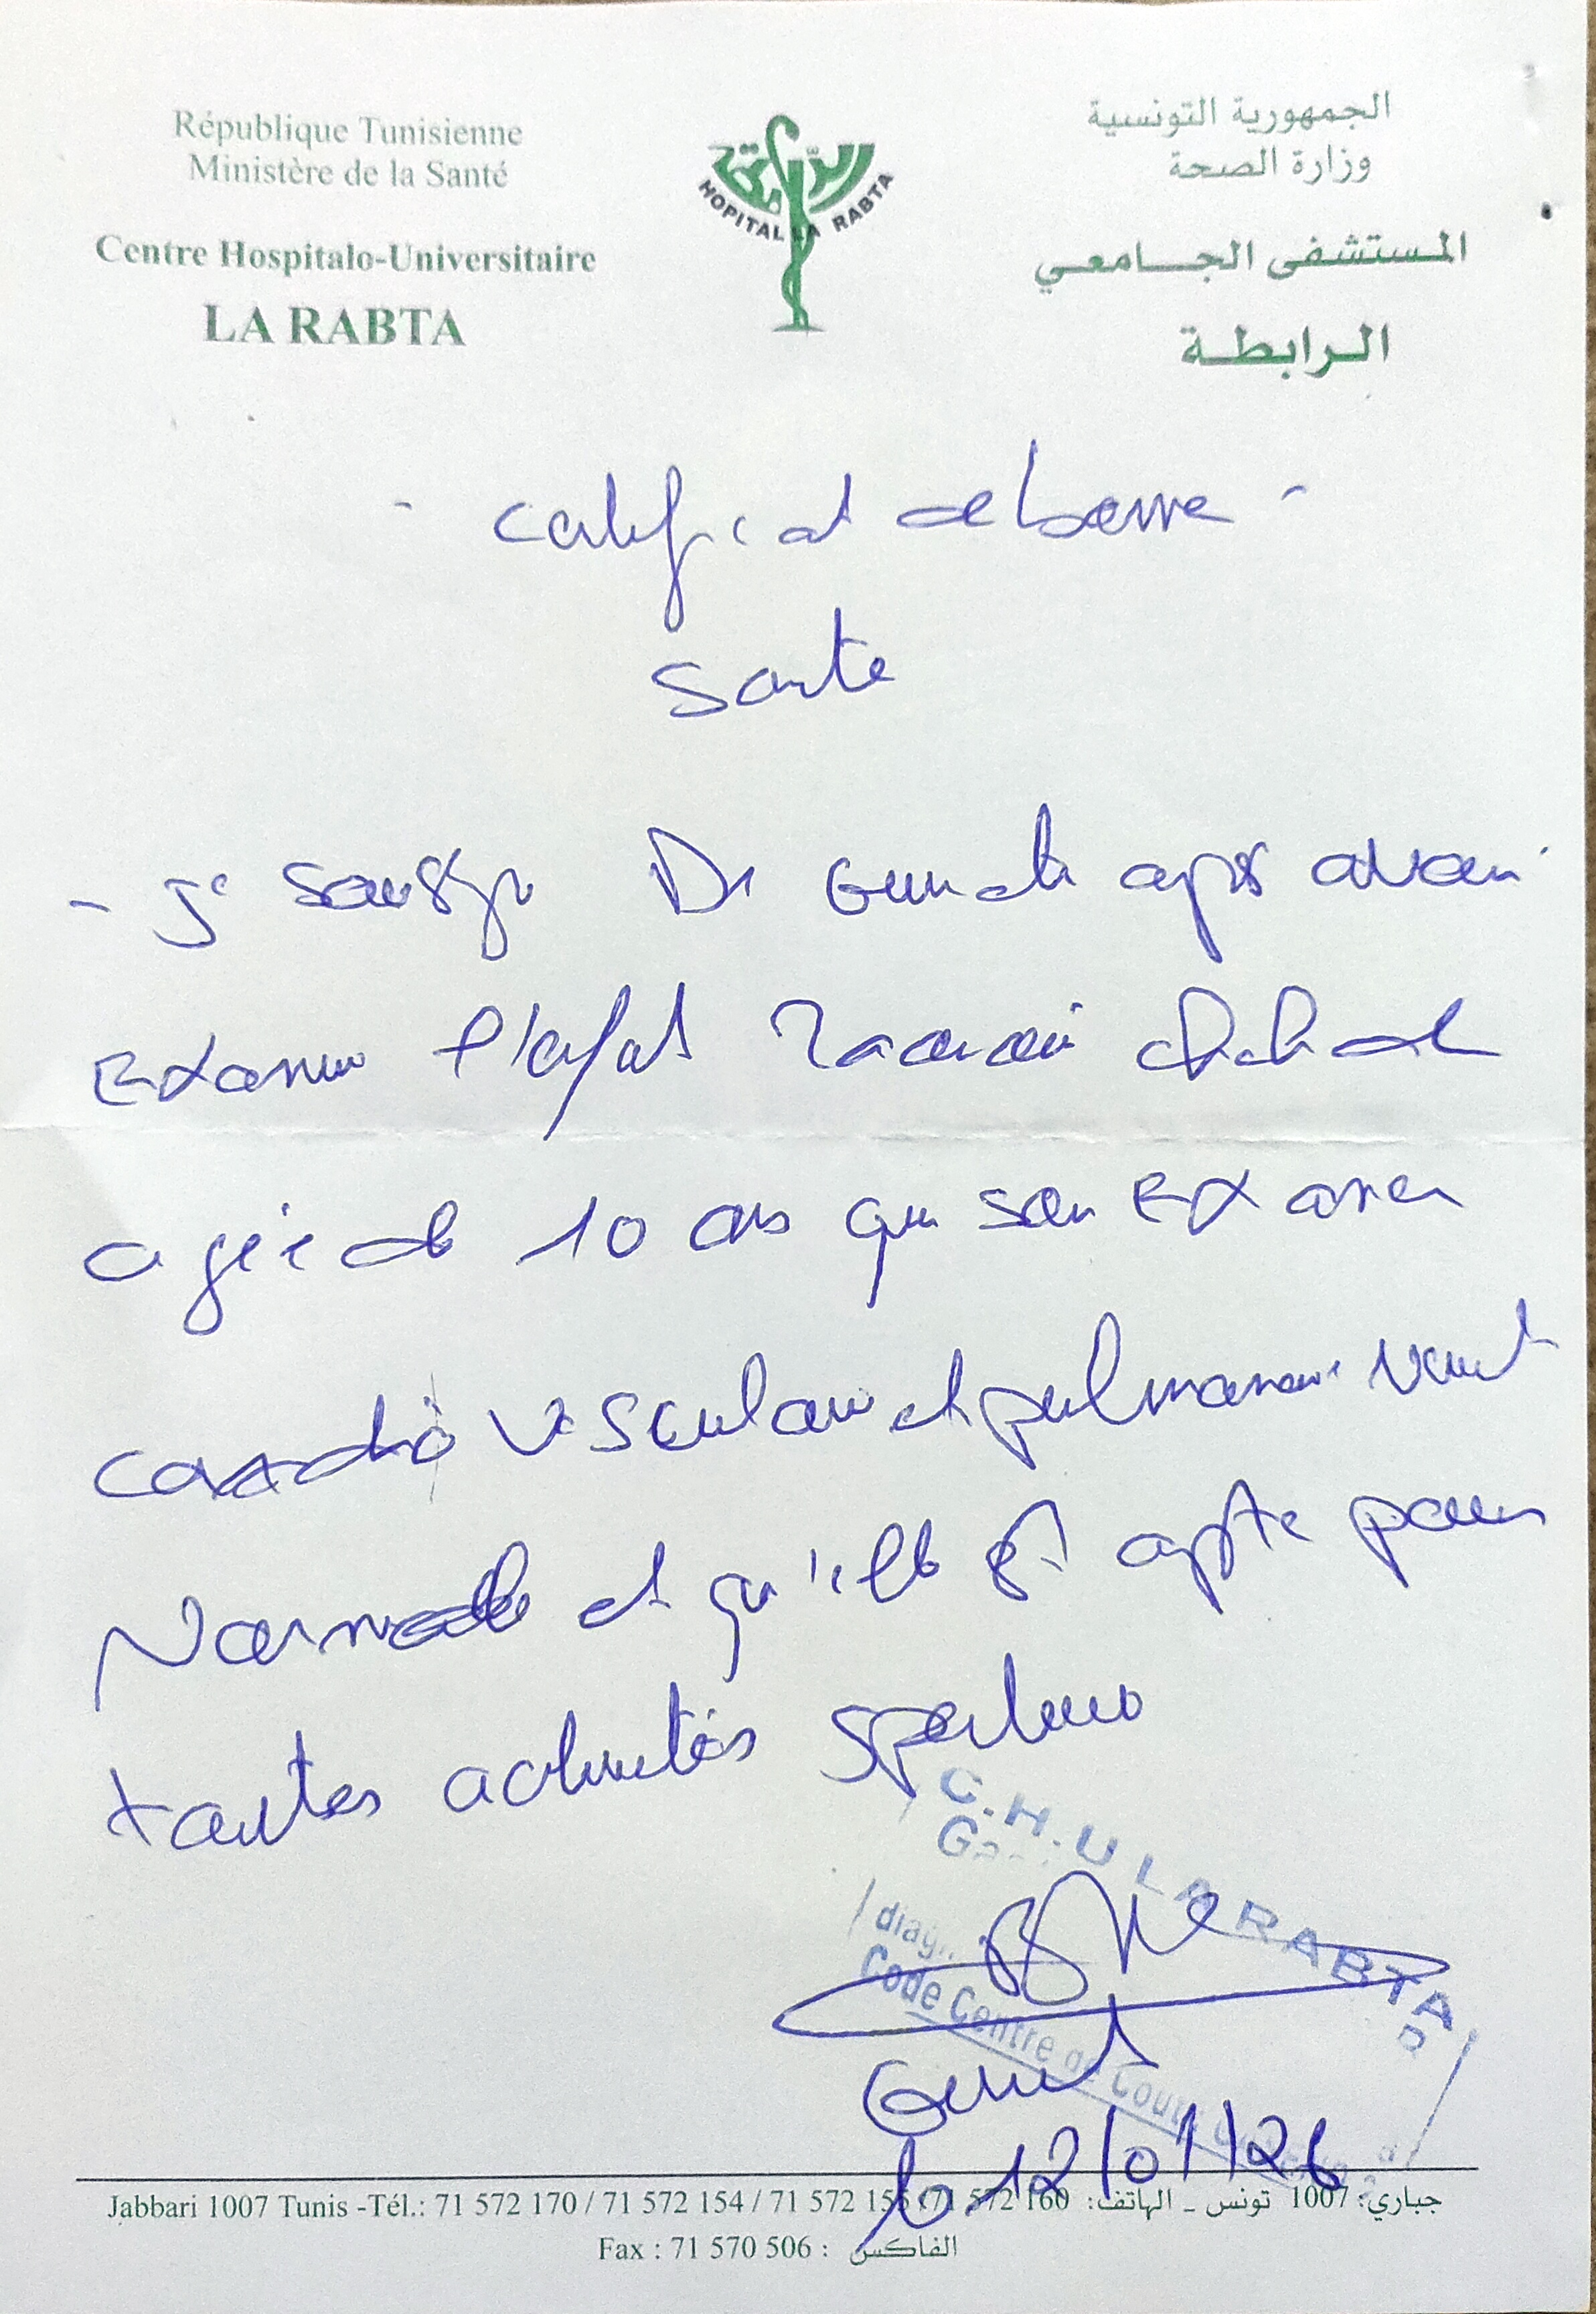 République Tunisienne
Ministère de la Santé
Centre Hospitalo-Universitaire
LA RABTA
الرابطة
HOPITAL LA RABTA
الجمهورية التونسية
وزارة الصحة
المستشفى الجامعي
الرابطة
- Certificat de bonne -
Santé
- Je soussigné Dr après avoir
Examiné l'enfant
agée de 10 ans que son Examen
cardio vasculaire et pulmonaire
Normale et qu'elle est apte pour
toutes activités sportives
C.H.U LA RABTA
Code Centre de
le 12/01/26
Jabbari 1007 Tunis -Tél.: 71 572 170 / 71 572 154 / 71 572 155 / 71 572 160 جباري: 1007 تونس ـ الهاتف:
Fax : 71 570 506 : الفاكس